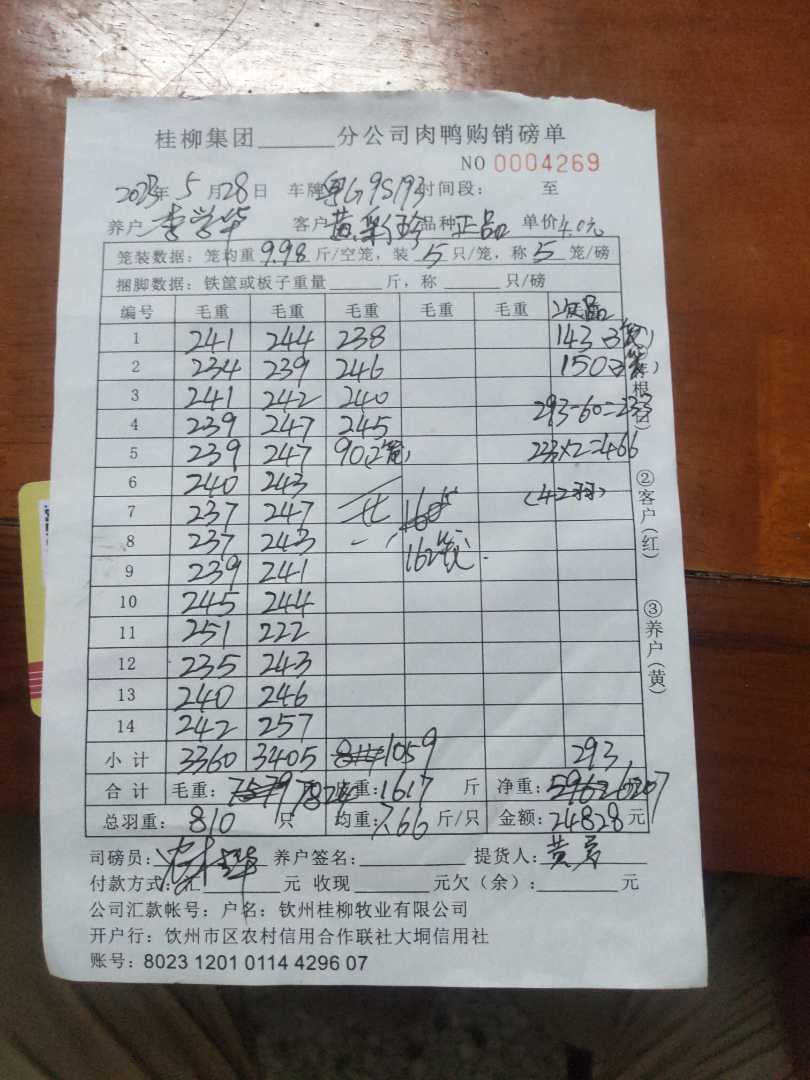 桂柳集团______分公司肉鸭购销磅单
NO 0004269
2023年5月28日 车牌粤G9S193时间段: 至
养户李学华 客户黄彩珍品种正品 单价4.0元
笼装数据:笼均重9.98斤/空笼,装5只/笼,称5笼/磅
捆脚数据:铁筐或板子重量______斤,称______只/磅
编号 毛重 毛重 毛重 毛重 毛重 次品
1 241 244 238 143 3笼
2 234 239 246 150 3笼
3 241 242 240
4 239 247 245 293-60=233
5 239 247 90(2笼) 233×2=466
6 240 243
7 237 247 共 160 (42羽)
8 237 243
9 239 241 162笼
10 245 244
11 251 222
12 235 243
13 240 246
14 242 257
小计 3360 3405 1059 293
合计 毛重:7579 7824 皮重:1617 斤 净重:5962 6207
总羽重:810 只 均重:7.66斤/只 金额:24828元
司磅员: 养户签名:______ 提货人:黄
付款方式:汇______元 收现______元欠(余):______元
公司汇款帐号:户名:钦州桂柳牧业有限公司
开户行:钦州市区农村信用合作联社大垌信用社
账号:8023 1201 0114 4296 07
①存根(白)
②客户(红)
③养户(黄)